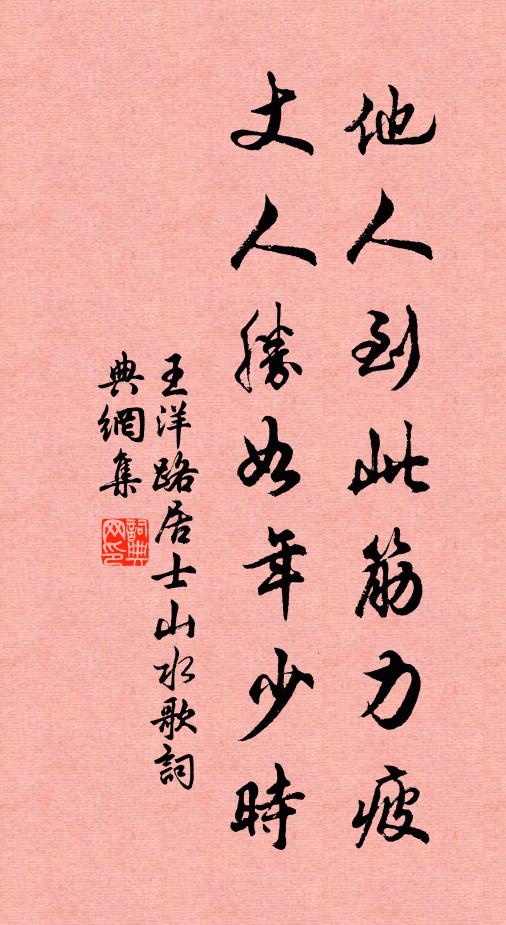 他人到此筋力疲
丈人勝如年少時
王洋路居士山水歌詞
典網集
詞典網印